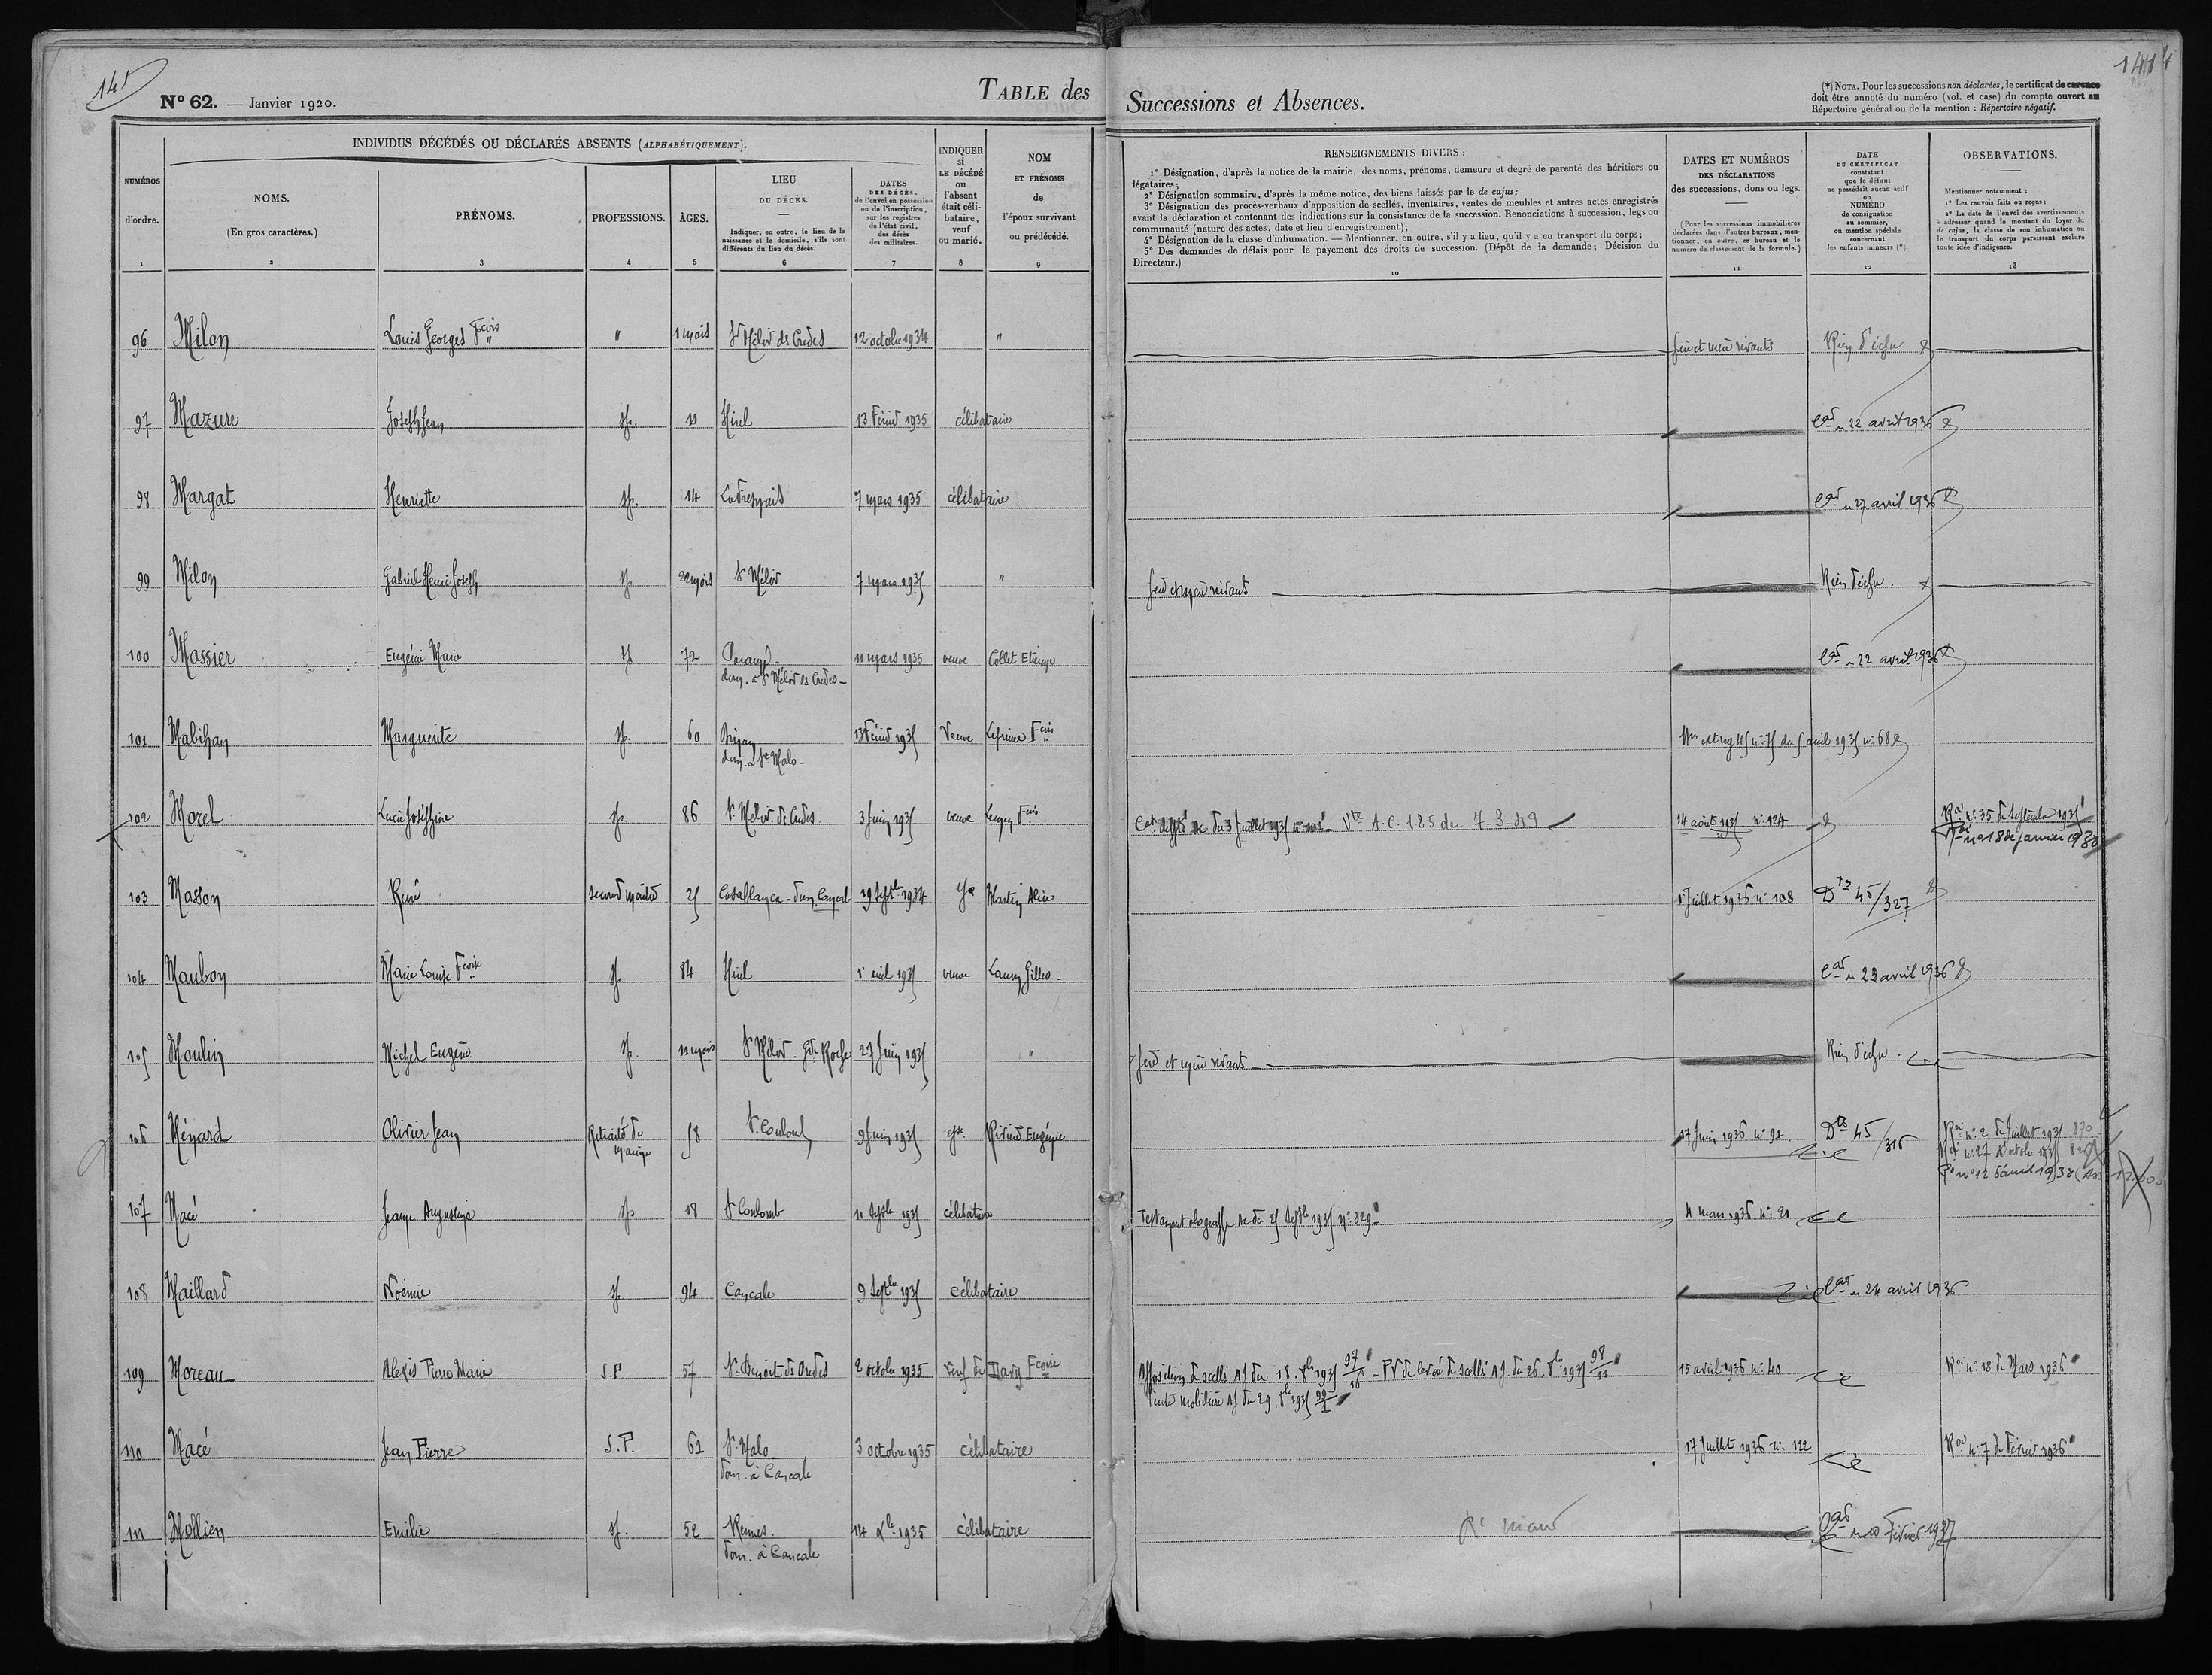 145
N° 62. — Janvier 1920.
TABLE des Successions et Absences.
(*) NOTA. Pour les successions non déclarées, le certificat de carence
doit être annoté du numéro (vol. et case) du compte ouvert au
Répertoire général ou de la mention : Répertoire négatif.
INDIVIDUS DÉCÉDÉS OU DÉCLARÉS ABSENTS (ALPHABÉTIQUEMENT).
NUMÉROS
d'ordre.
1
NOMS.
(En gros caractères.)
2
PRÉNOMS.
3
PROFESSIONS.
4
ÂGES.
5
LIEU
DU DÉCÈS.
—
Indiquer, en outre, le lieu de la
naissance et le domicile, s'ils sont
différents du lieu du décès.
6
DATES
DES DÉCÈS,
de l'envoi en possession
ou de l'inscription,
sur les registres
de l'état civil,
des décès
des militaires.
7
INDIQUER
si
LE DÉCÉDÉ
ou
l'absent
était céli-
bataire,
veuf
ou marié.
8
NOM
ET PRÉNOMS
de
l'époux survivant
ou prédécédé.
9
RENSEIGNEMENTS DIVERS :
1° Désignation, d'après la notice de la mairie, des noms, prénoms, demeure et degré de parenté des héritiers ou
légataires;
2° Désignation sommaire, d'après la même notice, des biens laissés par le de cujus;
3° Désignation des procès-verbaux d'apposition de scellés, inventaires, ventes de meubles et autres actes enregistrés
avant la déclaration et contenant des indications sur la consistance de la succession. Renonciations à succession, legs ou
communauté (nature des actes, date et lieu d'enregistrement);
4° Désignation de la classe d'inhumation. — Mentionner, en outre, s'il y a lieu, qu'il y a eu transport du corps;
5° Des demandes de délais pour le payement des droits de succession. (Dépôt de la demande; Décision du
Directeur.)
10
DATES ET NUMÉROS
DES DÉCLARATIONS
des successions, dons ou legs.
(Pour les successions immobilières
déclarées dans d'autres bureaux, men-
tionner, en outre, ce bureau et le
numéro de classement de la formule.)
11
DATE
DU CERTIFICAT
constatant
que le défunt
ne possédait aucun actif
ou
NUMÉRO
de consignation
au sommier,
ou mention spéciale
concernant
les enfants mineurs (*).
12
OBSERVATIONS.
Mentionner notamment :
1° Les renvois faits ou reçus;
2° La date de l'envoi des avertissements
à adresser quand le montant du loyer du
de cujus, la classe de son inhumation ou
le transport du corps paraissent exclure
toute idée d'indigence.
13
96 Milon Louis Georges Fcois " 1 mois St Méloir des Ondes 12 octobre 1934 " père et mère vivants Rien d'échu
97 Mazure Joseph Jean sp. 11 Hirel 13 Février 1935 célibataire Cat du 22 avril 1936
98 Margat Henriette sp. 14 7 mars 1935 célibataire Cat du 27 avril 1936
99 Milon Gabriel Henri Joseph sp. 22 mois St Méloir 7 mars 1935 " père et mère vivants Rien d'échu.
100 Massier Eugénie Marie sp 72 Paramé - 11 mars 1935 veuve Collet Etienne Cat du 22 avril 1936
dom. à St Méloir des Ondes -
101 Mabihan Marguerite sp. 60 13 Février 1935 Veuve Fcois
dom. à St Malo -
102 Morel Lucie Joséphine sp. 86 St Méloir des Ondes 3 Juin 1935 veuve Fcois du 3 Juillet 1935 Vte A.C. 125 du 7-3-49 14 août 1935 n° 124 n° 35 de Septembre 1935
n° 18 de janvier 1938
103 Masson René second maître 25 Casablanca - dom. Cancale 19 Septbre 1934 Martin Alice 1er Juillet 1936 n° 108 45/327
104 Maubon Marie Louise Fcoise sp 84 Hirel 1er avril 1935 veuve Launay Gilles - Cat du 23 avril 1936
105 Moulin Michel Eugène sp. 11 mois St Méloir - Gde Roche 27 Juin 1935 " père et mère vivants - Rien d'échu.
106 Ménard Olivier Jean Retraité de 58 St Coulomb 9 Juin 1935 Rivière Eugénie 17 Juin 1936 n° 91. 45/316 n° 2 de Juillet 1935 870
marine n° 27 d'octobre 1935
n° 12 avril 1938
107 Macé Jeanne Augustine sp 18 St Coulomb 11 Septbre 1935 célibataire Testament olographe Ac du 25 Septbre 1935 n° 329 4 mars 1936 n° 21
108 Maillard Noémie sp 94 Cancale 9 Septbre 1935 célibataire Cat du 24 avril 1936
109 Moreau Alexis Pierre Marie S.P 57 St Benoit des Ondes 2 octobre 1935 veuf de Davy Fcoise Apposition de scellés AJ du 18. 1935 97/10 - PV de levée de scellés AJ. du 26. 1935 98/11 15 avril 1936 n° 40 n° 18 de Mars 1936
Vente mobilière AJ du 29. 1935
110 Macé Jean Pierre S.P. 61 St Malo 3 octobre 1935 célibataire 17 Juillet 1936 n° 122 n° 7 de Février 1936
dom. à Cancale
111 Mollien Emilie sp. 52 Rennes. 14 1935 célibataire Cat du 10 Février 1937
dom. à Cancale